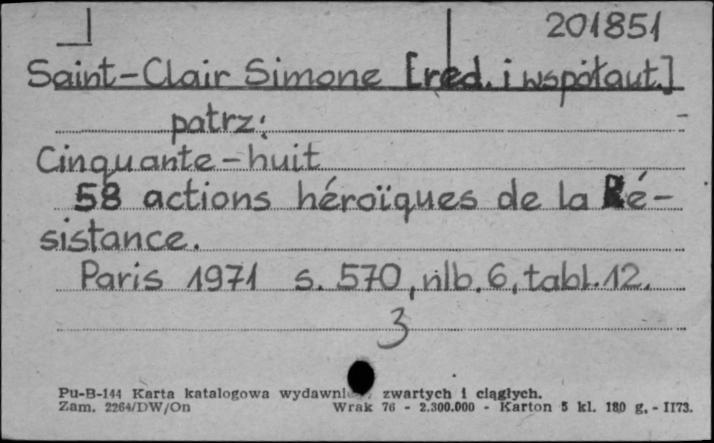 201851
Saint-Clair Simone [red. i współaut.]
patrz:
Cinquante-huit
58 actions héroïques de la Ré-
sistance.
Paris 1971 s. 570, nlb. 6, tabl. 12.
3
Pu-B-144 Karta katalogowa zwartych i ciągłych.
Zam. 2264/DW/On Wrak 76 - 2.300.000 - Karton 5 kl. 180 g. - II73.